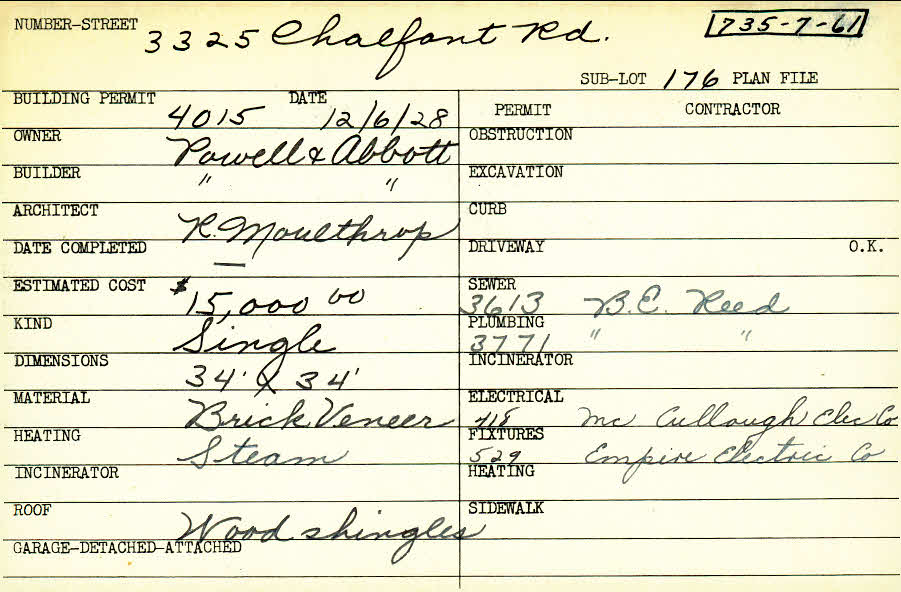 NUMBER-STREET 3325 Chalfant Rd. 735-7-61
SUB-LOT 176 PLAN FILE
BUILDING PERMIT 4015 DATE 12/6/28
PERMIT CONTRACTOR
OWNER Powell & Abbott
OBSTRUCTION
BUILDER " "
EXCAVATION
ARCHITECT R. Moulthrop
CURB
DATE COMPLETED —
DRIVEWAY O.K.
ESTIMATED COST $15,000 00
SEWER 3613 B.E. Reed
KIND Single
PLUMBING 3771 " "
DIMENSIONS 34' X 34'
INCINERATOR
MATERIAL Brick Veneer
ELECTRICAL 418 Mc Cullough Elec Co
HEATING Steam
FIXTURES 529 Empire Electric Co
INCINERATOR
HEATING
ROOF Wood shingles
SIDEWALK
GARAGE-DETACHED-ATTACHED